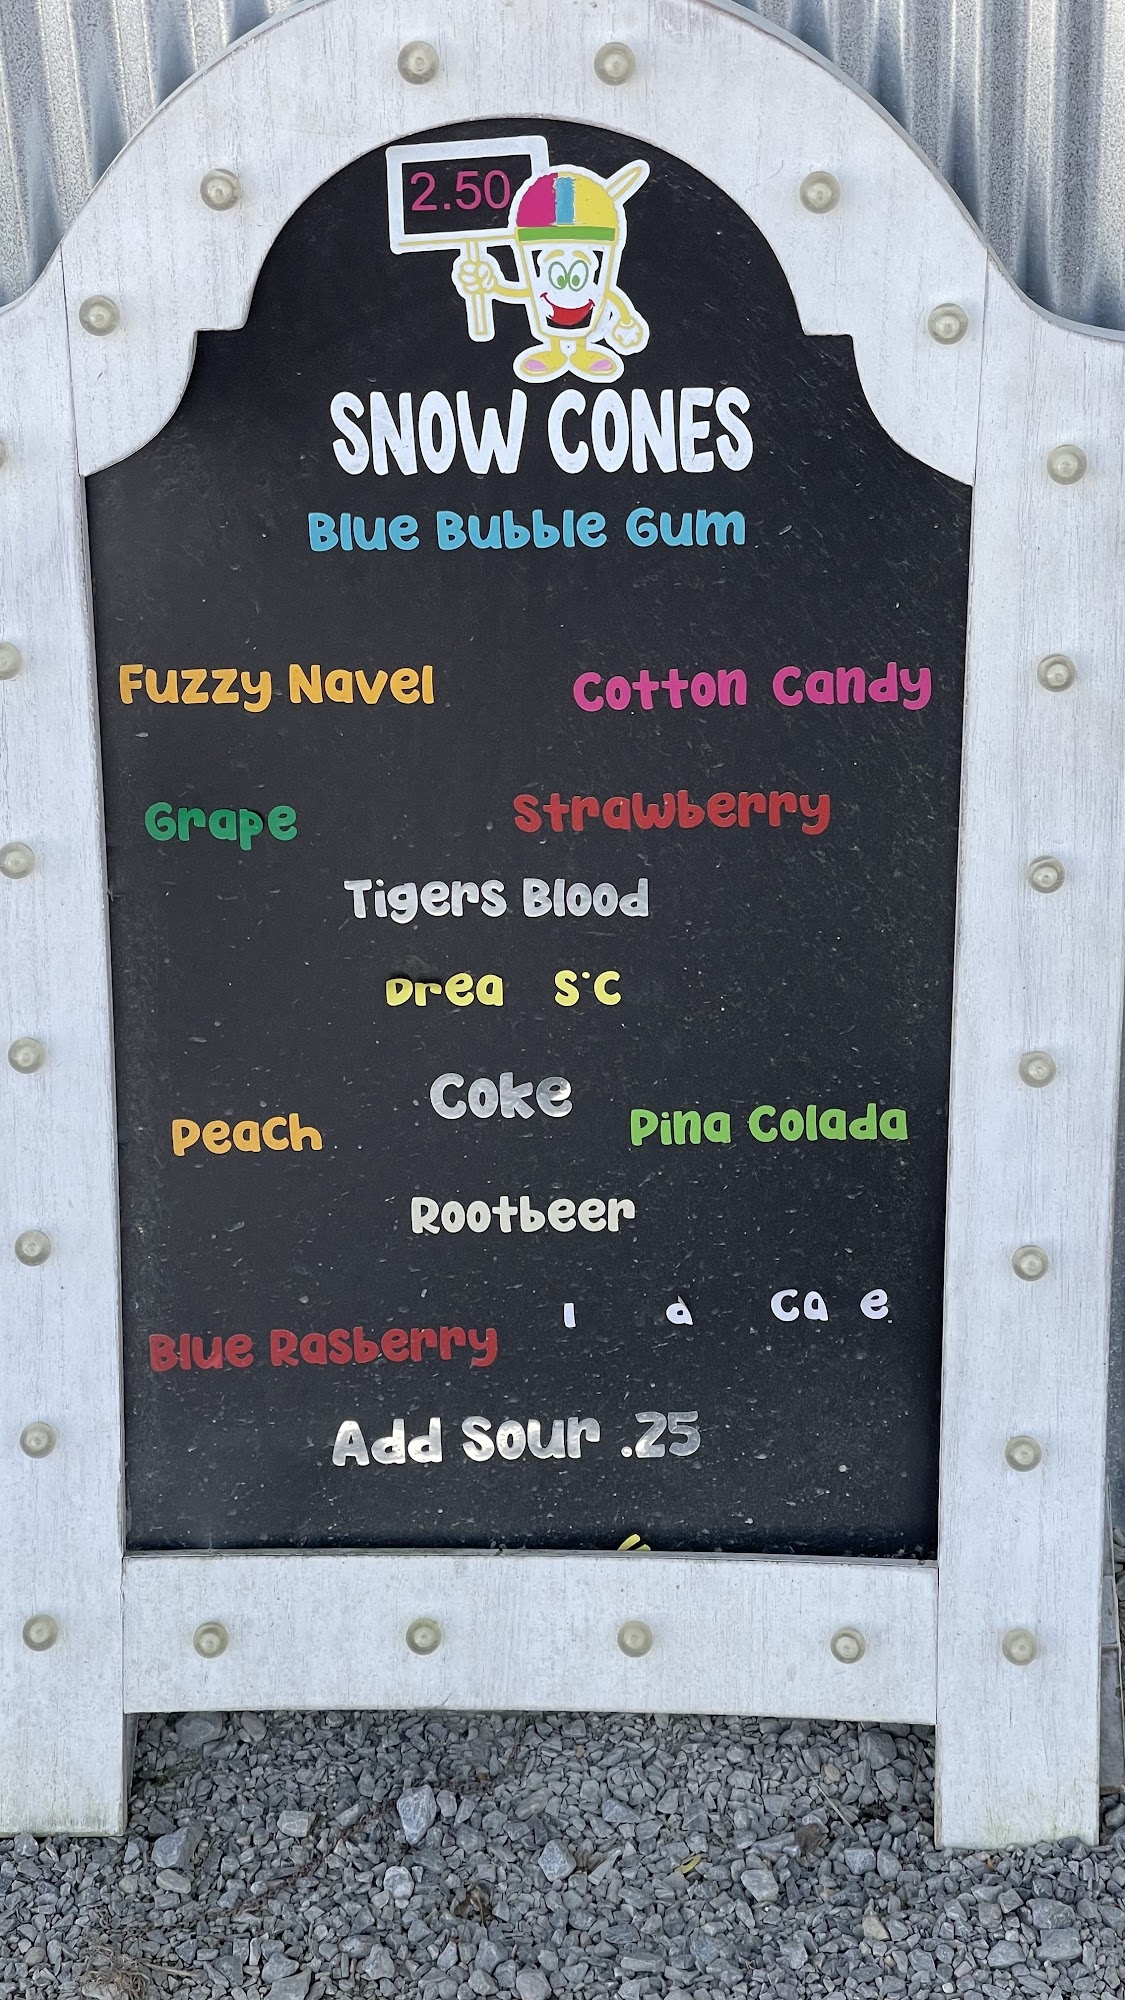 2.50
SNOW CONES
Blue Bubble Gum
Fuzzy Navel Cotton Candy
Grape Strawberry
Tigers Blood
Coke
Peach Pina Colada
Rootbeer
Blue Rasberry
Add Sour .25